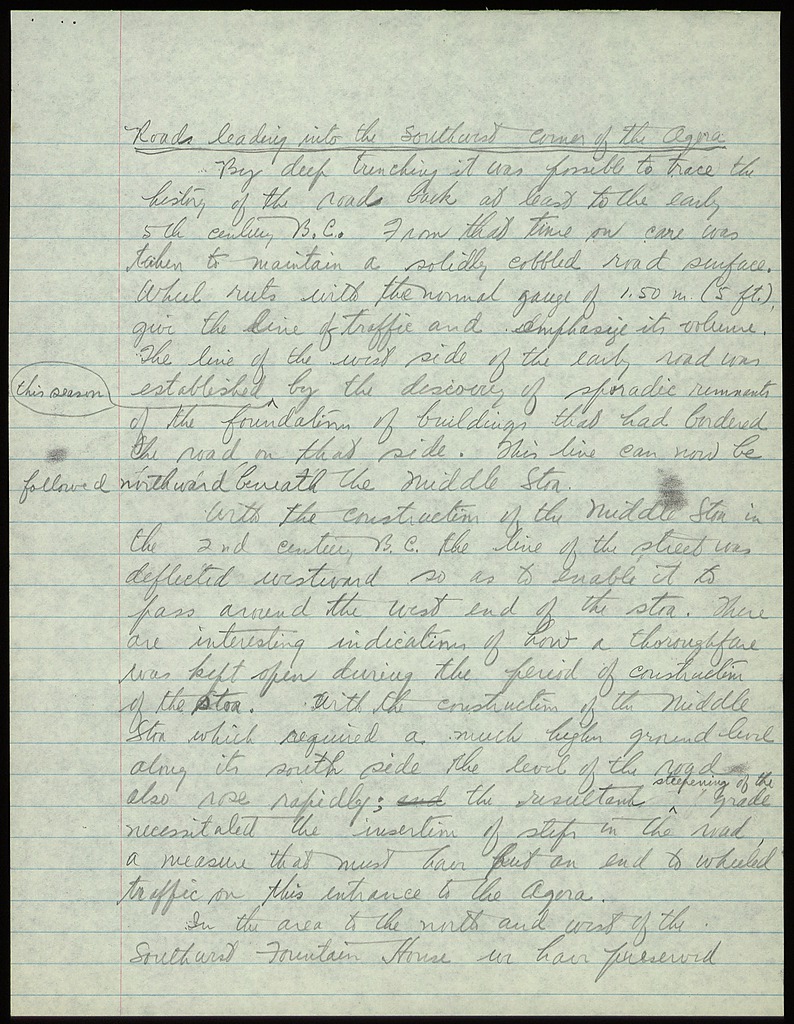 Roads leading into the Southwest corner of the Agora
By deep trenching it was possible to trace the
history of the roads back at least to the early
5th century B.C. From that time on care was
taken to maintain a solidly cobbled road surface.
Wheel ruts with the normal gauge of 1.50 m. (5 ft.),
give the line of traffic and emphasize its volume.
The line of the west side of the early road was
this season
established ‸ by the discovery of sporadic remnants
of the foundations of buildings that had bordered
the road on that side. This line can now be
followed northward beneath the Middle Stoa.
With the construction of the Middle Stoa in
the 2nd century B.C. the line of the street was
deflected westward so as to enable it to
pass around the west end of the stoa. There
are interesting indications of how a thoroughfare
was kept open during the period of construction
of the Stoa. With the construction of the Middle
Stoa which required a much higher ground level
along its south side the level of the road
steepening of the
also rose rapidly; and the resultant ‸ grade
necessitated the insertion of steps in the road,
a measure that must have put an end to wheeled
traffic on this entrance to the Agora.
In the area to the north and west of the
Southwest Fountain House we have preserved